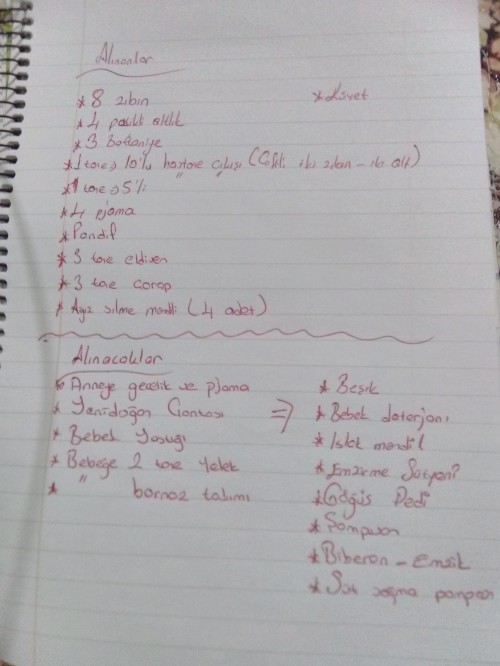 Alınanlar
* 8 zıbın
* Küvet
* 4 paket atlet
* 3 battaniye
* 1 tane => 10'lu hastane çıkışı (Çift iki zıbın - iki alt)
* 1 tane => 5'li
* 4 pjama
* Pandif
* 3 tane eldiven
* 3 tane çorap
* Ağız silme mendili (4 adet)
Alınacaklar
* Anneye gecelik ve pjama
* Yenidoğan Çantası =>
* Bebek Yastığı
* Bebeğe 2 tane Yelek
* " bornoz takımı
* Beşik
* Bebek deterjanı
* Islak mendil
* Emzirme Sütyeni
* Göğüs Pedi
* Şampuan
* Biberon - Emzik
* Süt sağma pompası